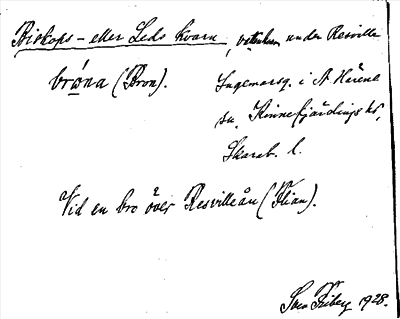 Biskops- eller Leds kvarn, vattenkvarn under Resville
bróna (Bron). Ingemarsg. i N Härene
sn, Kinnefjärdings hd,
Skarab. l.
Vid en bro över Resvilleån (Flian).
Sven Friberg 1928.